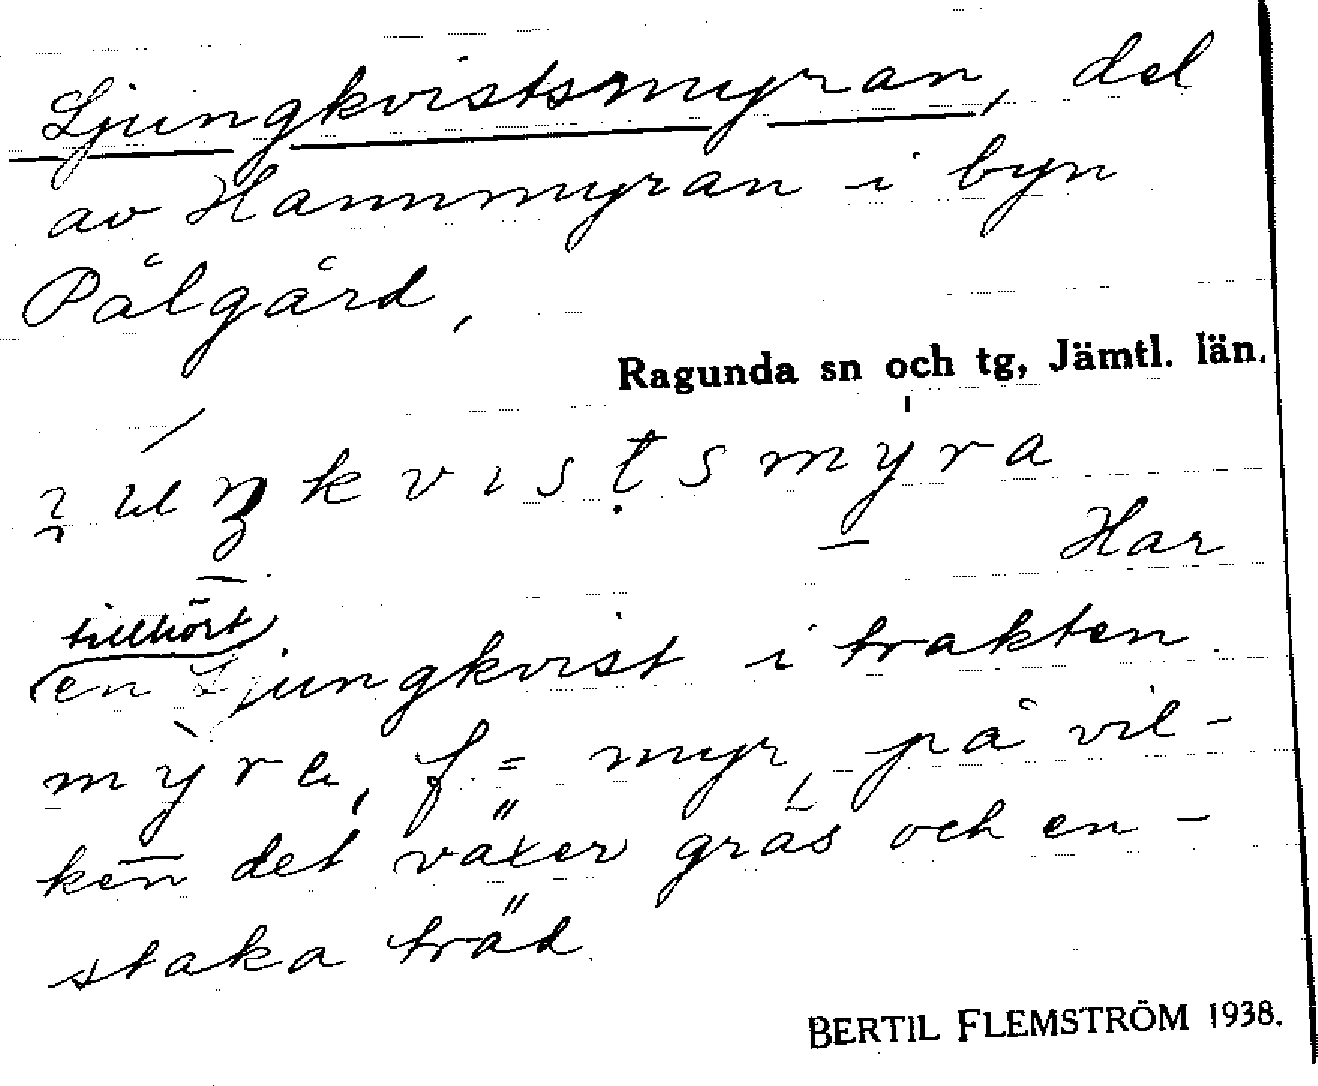 Ljungkvistsmyran, del
av Hammmyran i byn
Pålgård,
Ragunda sn och tg, Jämtl. län.
Har
tillhört
en Ljungkvist i trakten
myra, f = myr, på vil-
ken det växer gräs och en-
staka träd
BERTIL FLEMSTRÖM 1938.